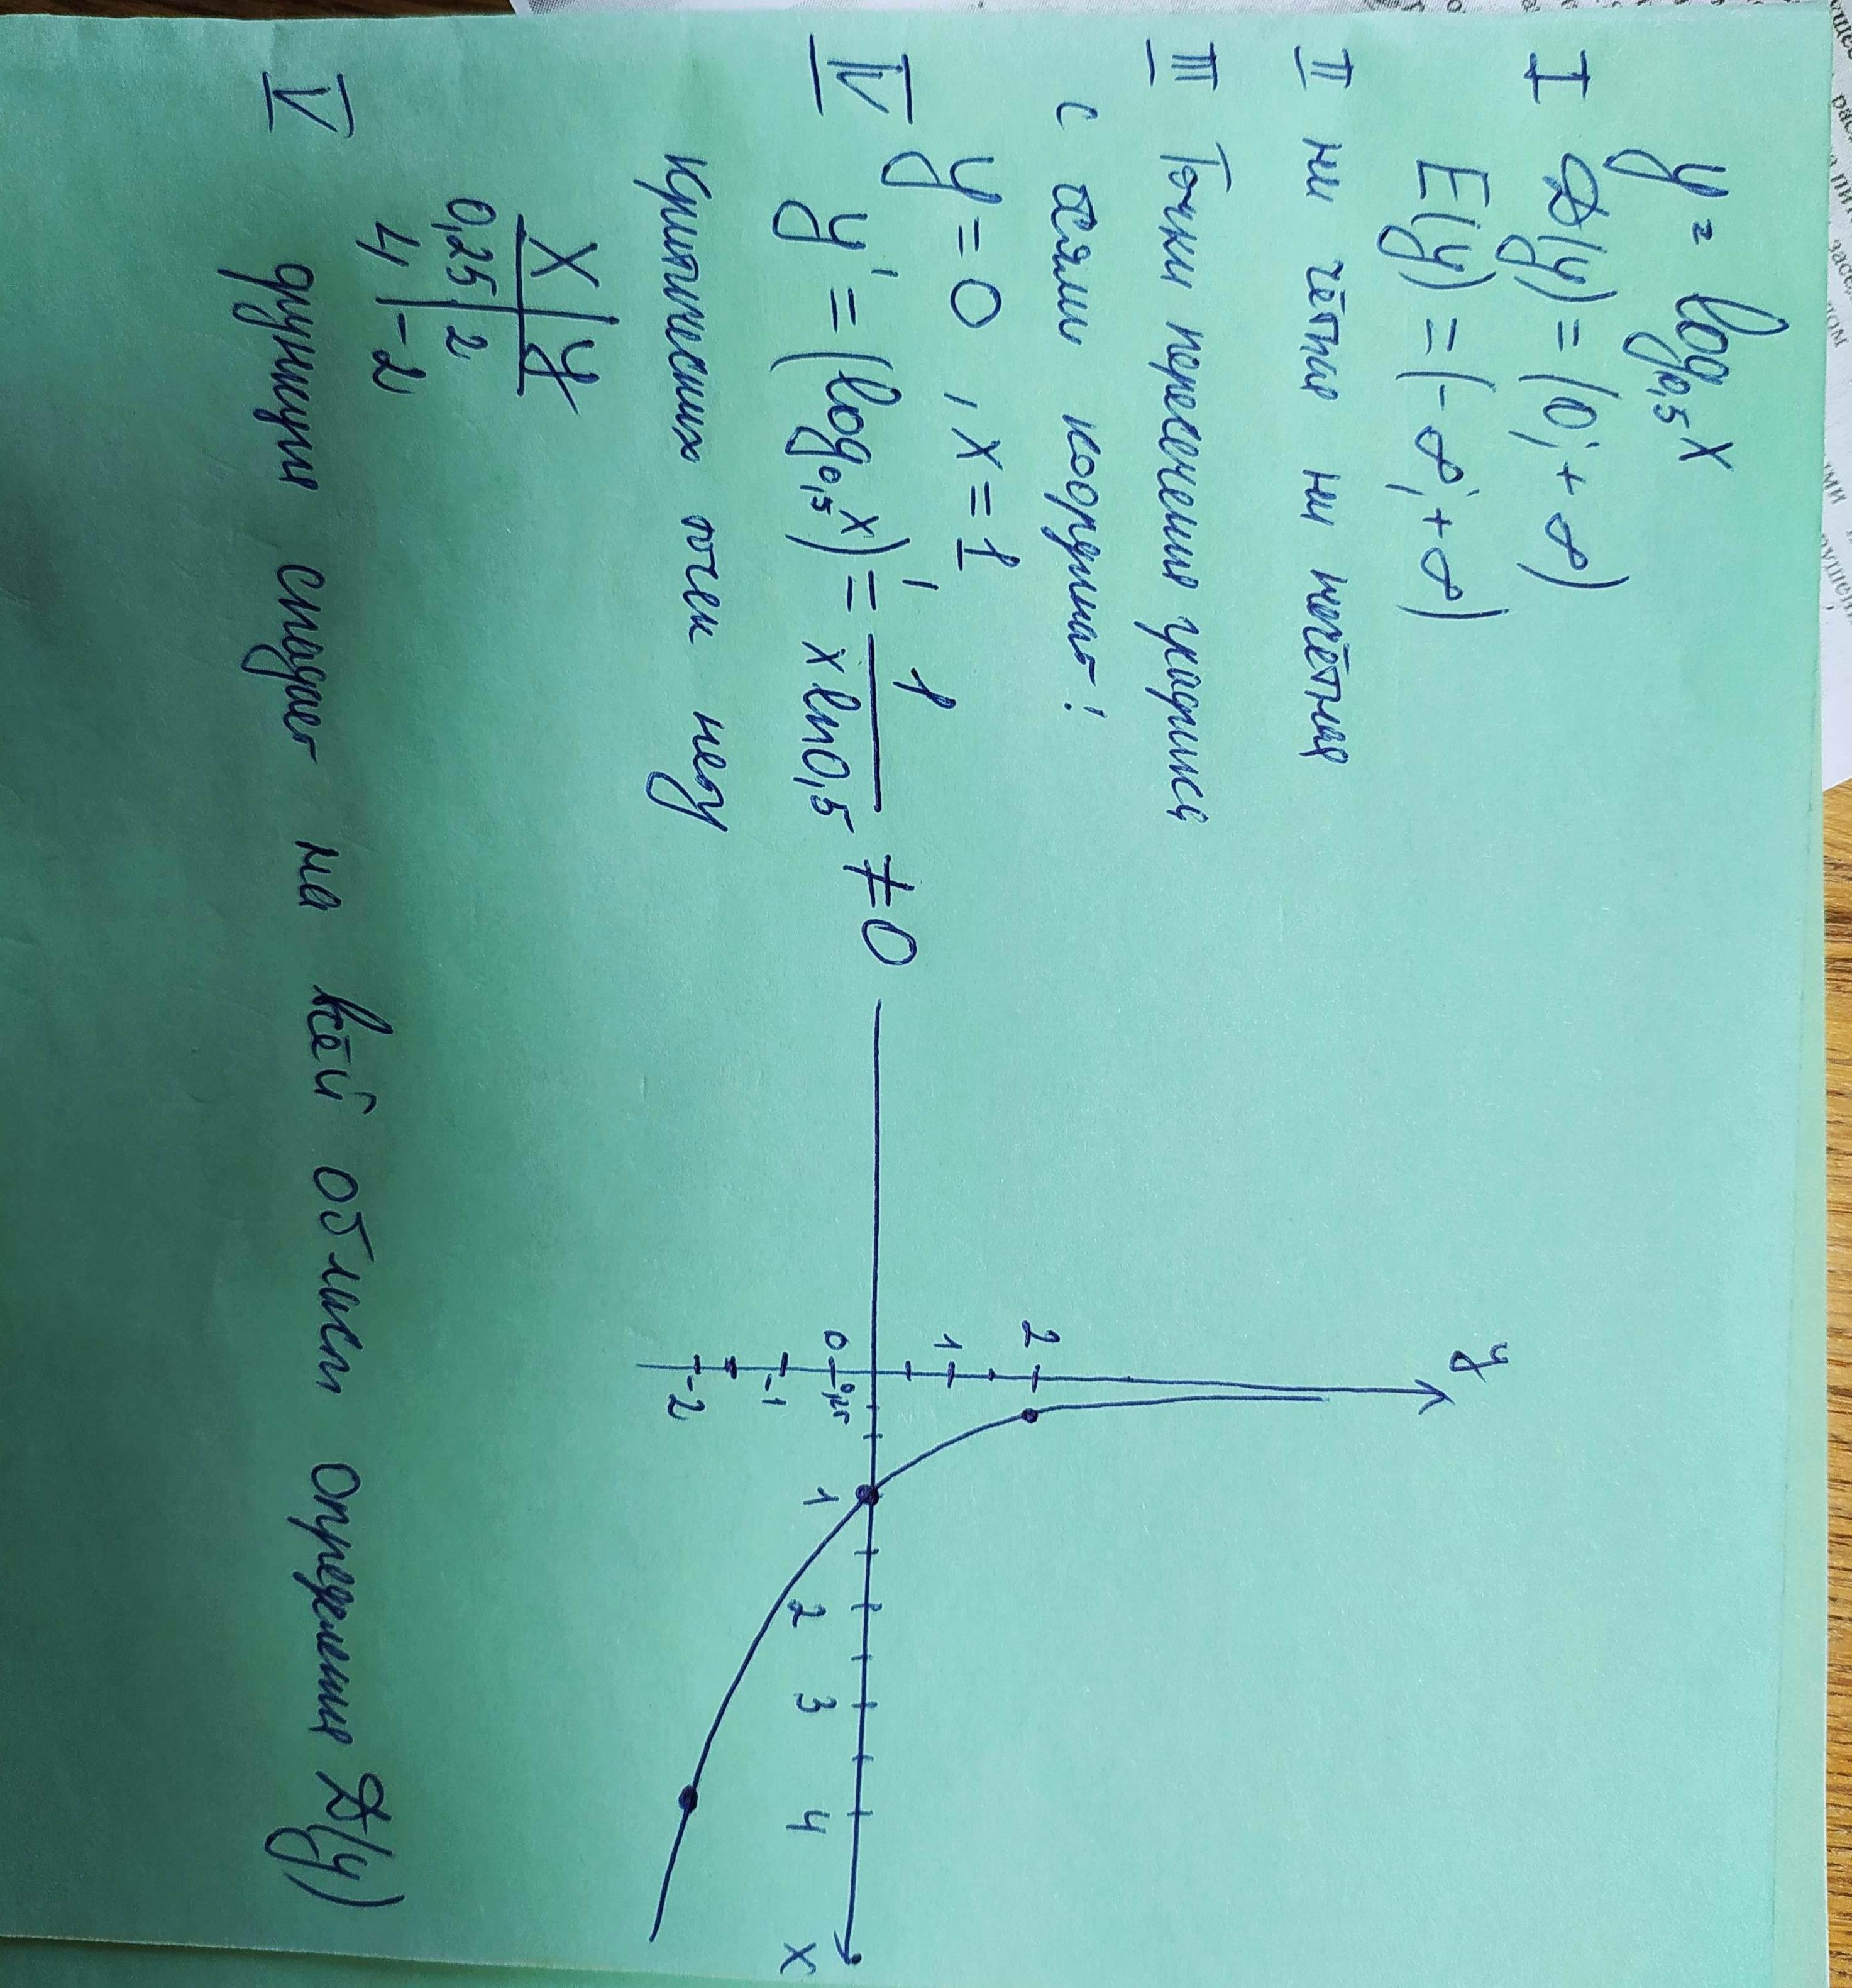 y = log₀,₅ x
I D(y) = (0; +∞)
E(y) = (-∞; +∞)
II ни чётная ни нечётная
III Точки пересечения графика
с осями координат:
y = 0, x = 1
IV y' = (log₀,₅ x)' = 1/(x ln 0,5) ≠ 0
критических точек нету
x | y
0,25 | 2
4 | -2
V функция спадает на всей области определения D(y)
y
2
1
0
0,25
-1
-2
1 2 3 4 x